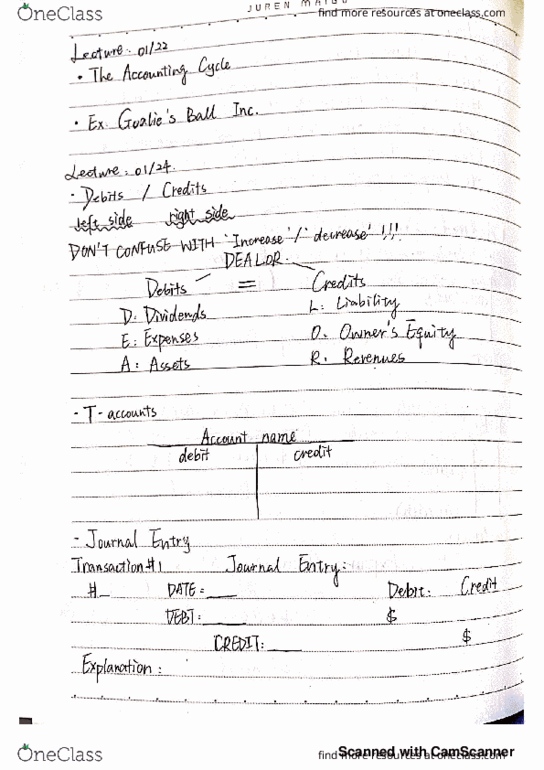 OneClass
JUREN
find more resources at oneclass.com
Lecture: 01/22
• The Accounting Cycle
• Ex. Goalie's Ball Inc.
Lecture: 01/24
- Debits / Credits
left side right side
DON'T CONFUSE WITH 'Increase'/'decrease' !!!
DEALOR
Debits = Credits
D: Dividends L: Liability
E: Expenses O. Owner's Equity
A: Assets R. Revenues
- T- accounts
Account name
debit credit
- Journal Entry
Transaction#1 Journal Entry:
#_ DATE: ___ Debit: Credit
DEBT: ___ $
CREDIT: ___ $
Explanation:
OneClass
find more resources at oneclass.com
Scanned with CamScanner